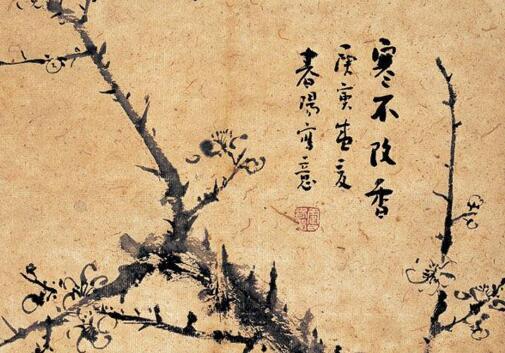 寒不改香
庚寅夏
春陽寫意